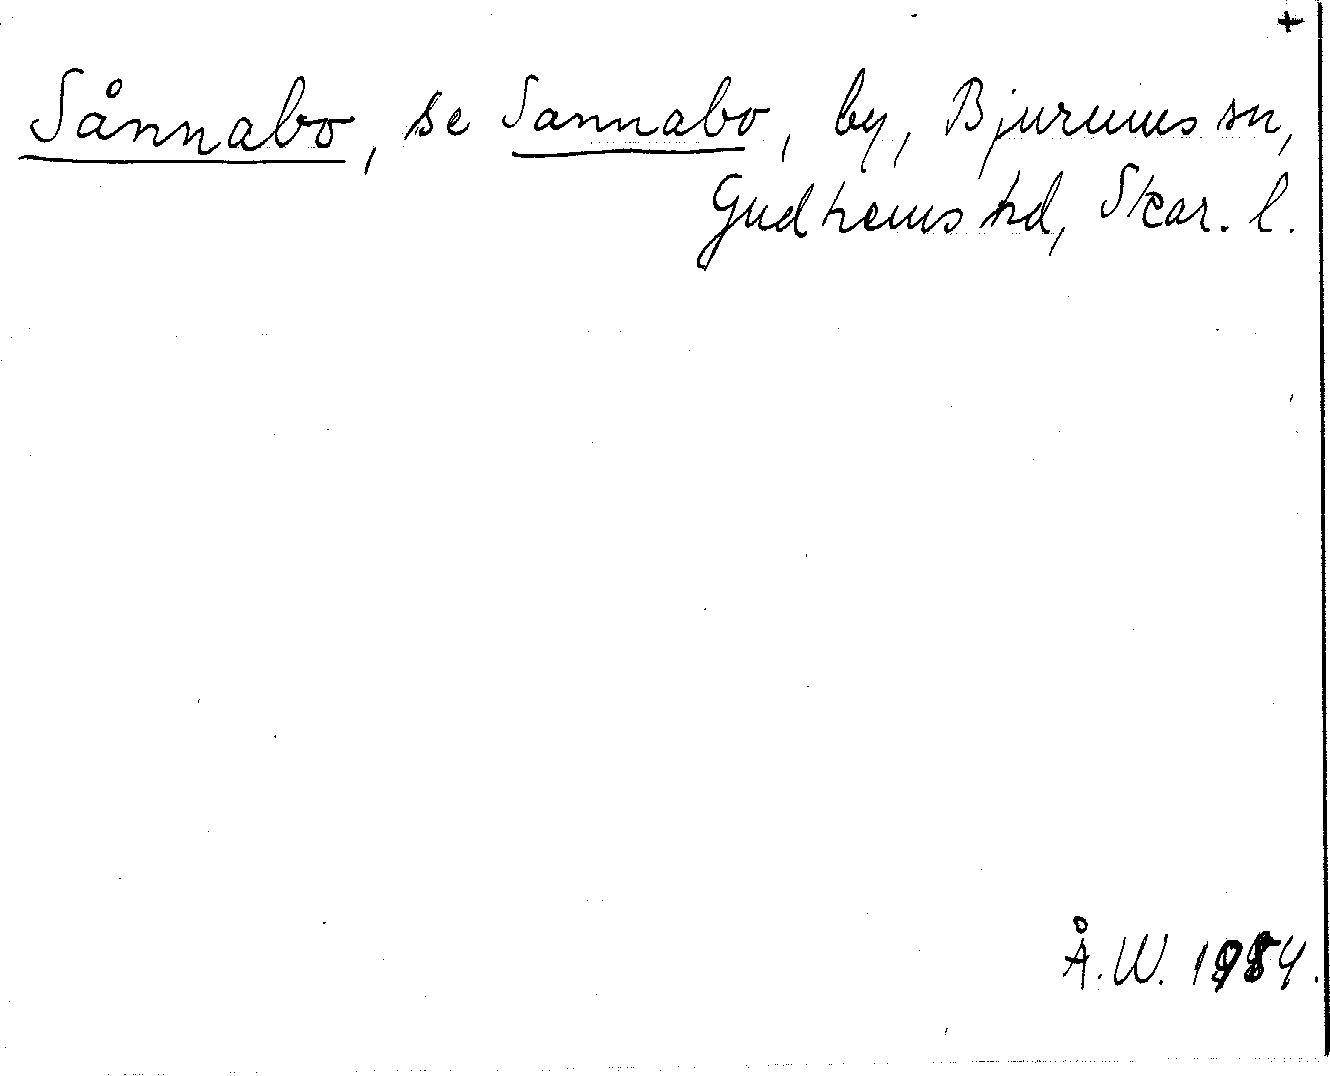 +
Sånnabo, se Sannabo, by, Bjurums sn,
Gudhems hd, Skar. l.
Å.W. 1984.